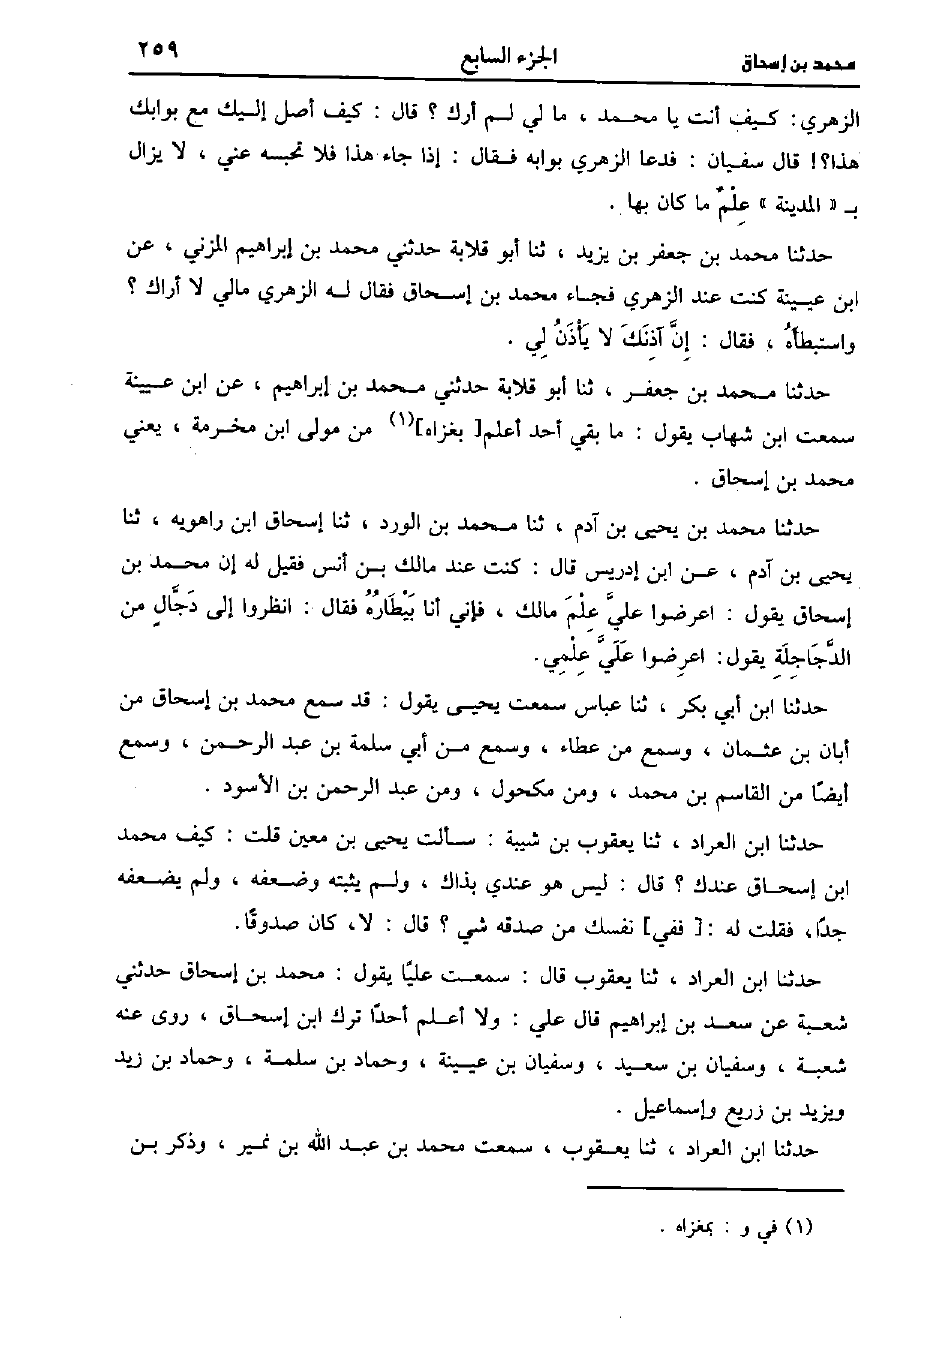 محمد بن إسحاق الجزء السابع ٢٥٩
الزهري: كيف أنت يا محمد ، ما لي لم أرك ؟ قال : كيف أصل إليك مع بوابك
هذا؟! قال سفيان : فدعا الزهري بوابه فقال : إذا جاء هذا فلا تحبسه عني ، لا يزال
بـ « المدينة » عِلْمٌ ما كان بها .
حدثنا محمد بن جعفر بن يزيد ، ثنا أبو قلابة حدثني محمد بن إبراهيم المزني ، عن
ابن عيينة كنت عند الزهري فجاء محمد بن إسحاق فقال له الزهري مالي لا أراك ؟
واستبطأهُ ، فقال : إِنَّ آذِنَكَ لا يَأْذَنُ لِي .
حدثنا محمد بن جعفر ، ثنا أبو قلابة حدثني محمد بن إبراهيم ، عن ابن عيينة
سمعت ابن شهاب يقول : ما بقي أحد أعلم[ بغزاه](١) من مولى ابن مخرمة ، يعني
محمد بن إسحاق .
حدثنا محمد بن يحيى بن آدم ، ثنا محمد بن الورد ، ثنا إسحاق ابن راهويه ، ثنا
يحيى بن آدم ، عن ابن إدريس قال : كنت عند مالك بن أنس فقيل له إن محمد بن
إسحاق يقول : اعرضوا عليَّ عِلْمَ مالك ، فإني أنا بَيْطَارُهُ فقال : انظروا إلى دَجَّالٍ من
الدَّجَاجِلَةِ يقول: اعرِضوا عَلَيَّ عِلْمِي.
حدثنا ابن أبي بكر ، ثنا عباس سمعت يحيى يقول : قد سمع محمد بن إسحاق من
أبان بن عثمان ، وسمع من عطاء ، وسمع من أبي سلمة بن عبد الرحمن ، وسمع
أيضًا من القاسم بن محمد ، ومن مكحول ، ومن عبد الرحمن بن الأسود .
حدثنا ابن العراد ، ثنا يعقوب بن شيبة : سألت يحيى بن معين قلت : كيف محمد
ابن إسحاق عندك ؟ قال : ليس هو عندي بذاك ، ولم يثبته وضعفه ، ولم يضعفه
جدًا، فقلت له :[ ففي] نفسك من صدقه شي ؟ قال : لا، كان صدوقًا.
حدثنا ابن العراد ، ثنا يعقوب قال : سمعت عليًا يقول : محمد بن إسحاق حدثني
شعبة عن سعد بن إبراهيم قال علي : ولا أعلم أحدًا ترك ابن إسحاق ، روى عنه
شعبة ، وسفيان بن سعيد ، وسفيان بن عيينة ، وحماد بن سلمة ، وحماد بن زيد
ويزيد بن زريع وإسماعيل .
حدثنا ابن العراد ، ثنا يعقوب ، سمعت محمد بن عبد الله بن نمير ، وذكر بن
(١) في و : بمغزاه .